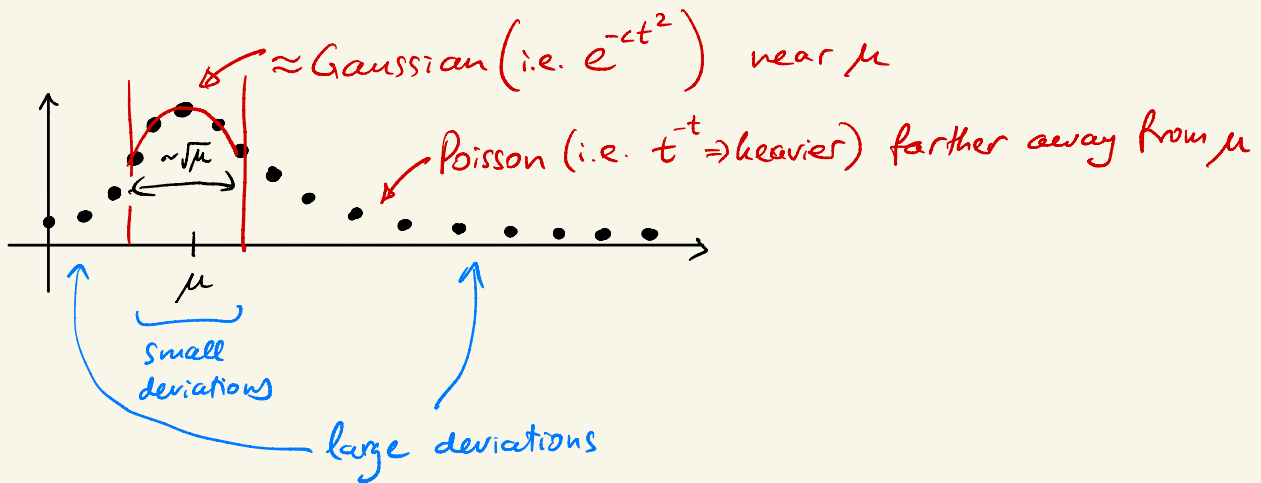 ≈ Gaussian (i.e. e^{-ct^2}) near μ
Poisson (i.e. t^{-t} ⇒ heavier) farther away from μ
~√μ
μ
small
deviations
large deviations